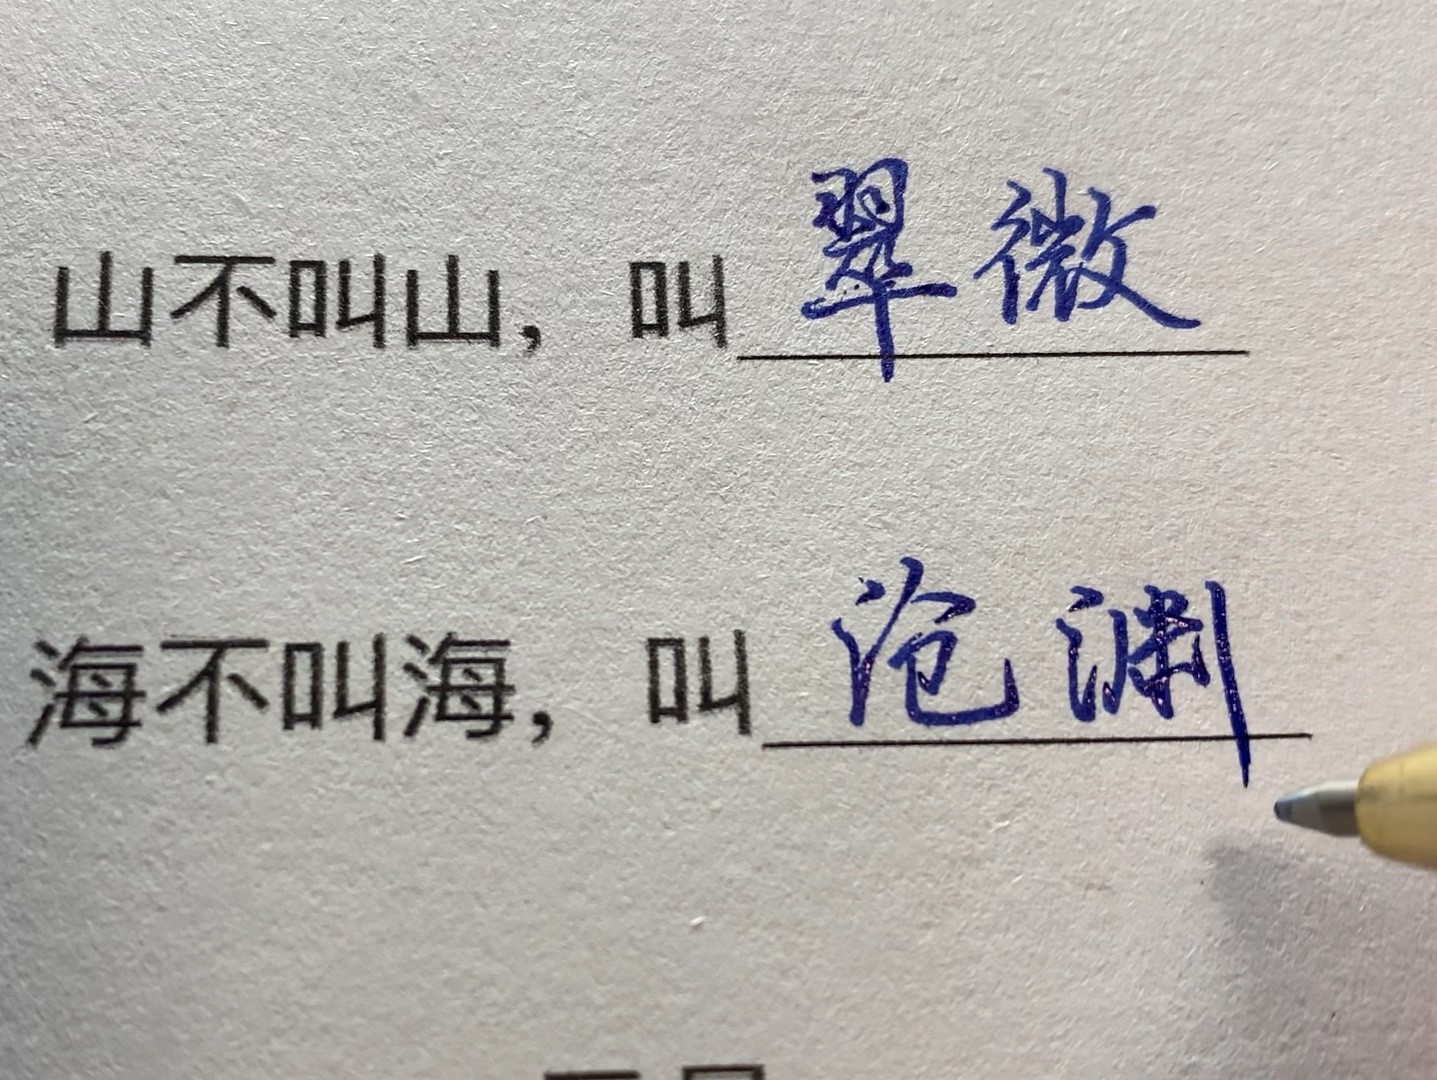 山不叫山，叫翠微
海不叫海，叫沧渊